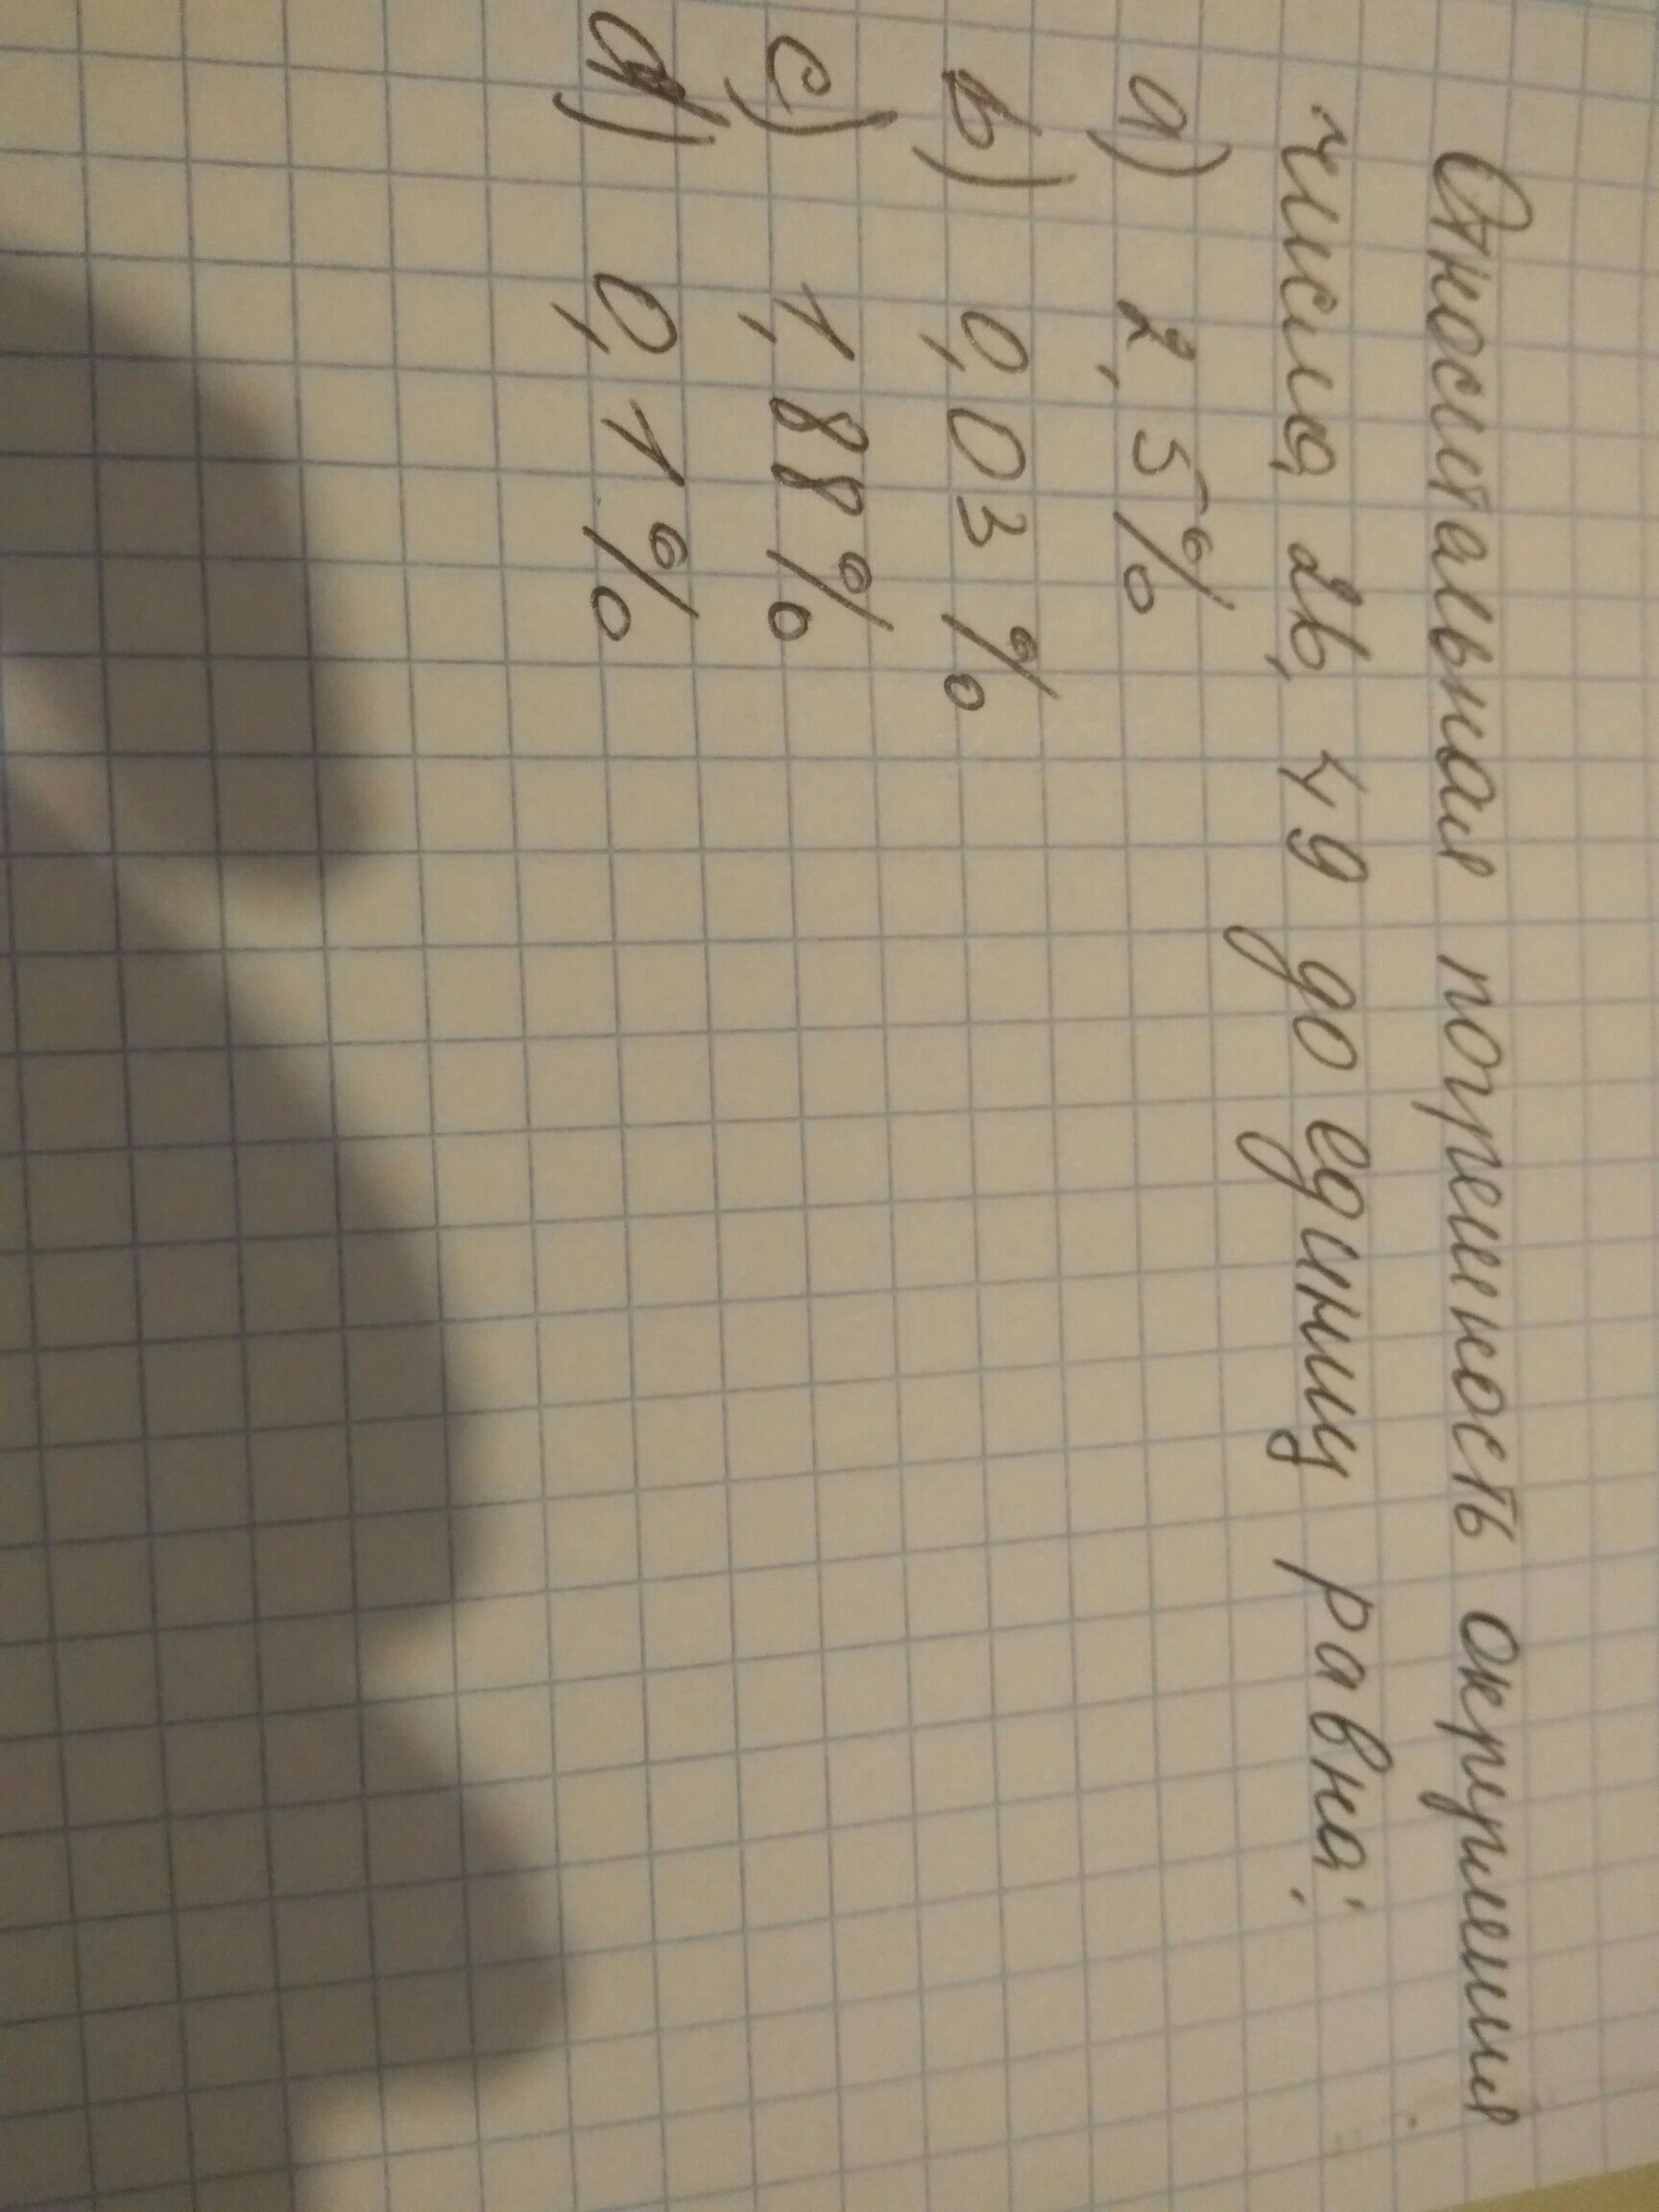 Относительная погрешность округления
числа 26,49 до единиц равна:
a) 2,5%
b) 0,03 %
c) 1,88%
d) 0,1%